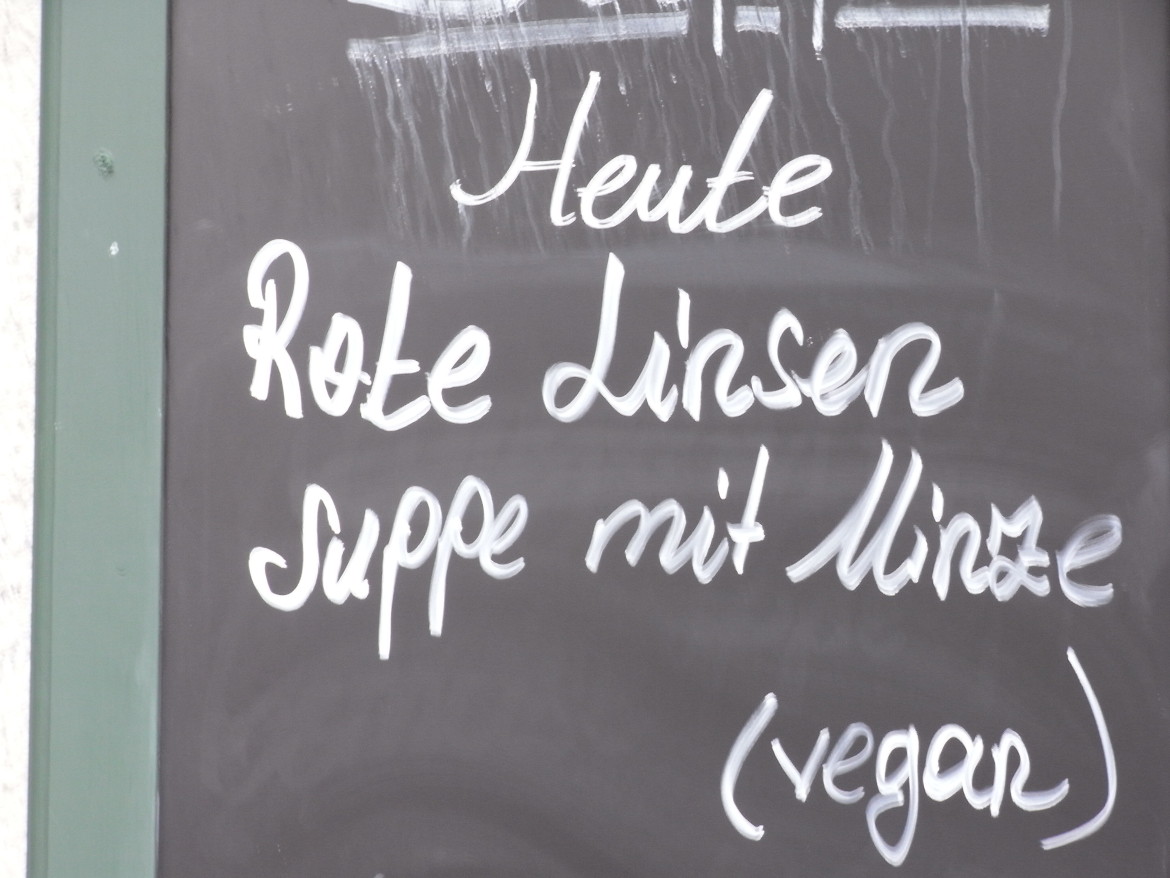 Heute
Rote Linsen
suppe mit Minze
(vegan)